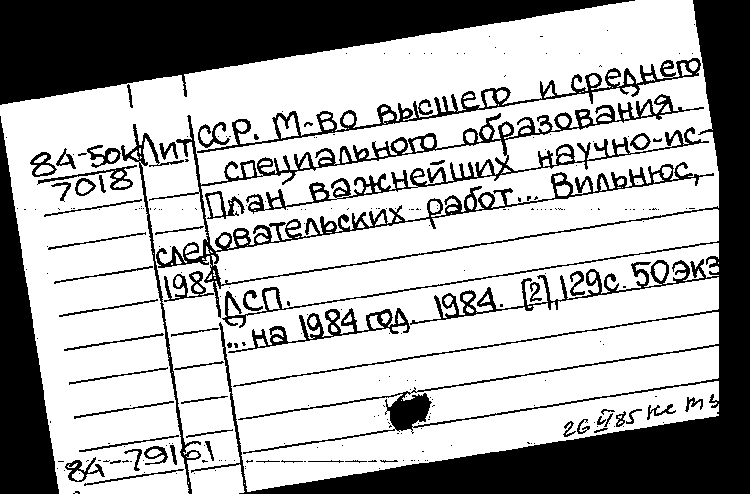 84-50к Лит ССР. М-во высшего и среднего
7018 специального образования.
План важнейших научно-ис-
следовательских работ... Вильнюс,
1984.
ДСП.
...на 1984 год. 1984. [2], 129с. 50экз
84-79161
26 85